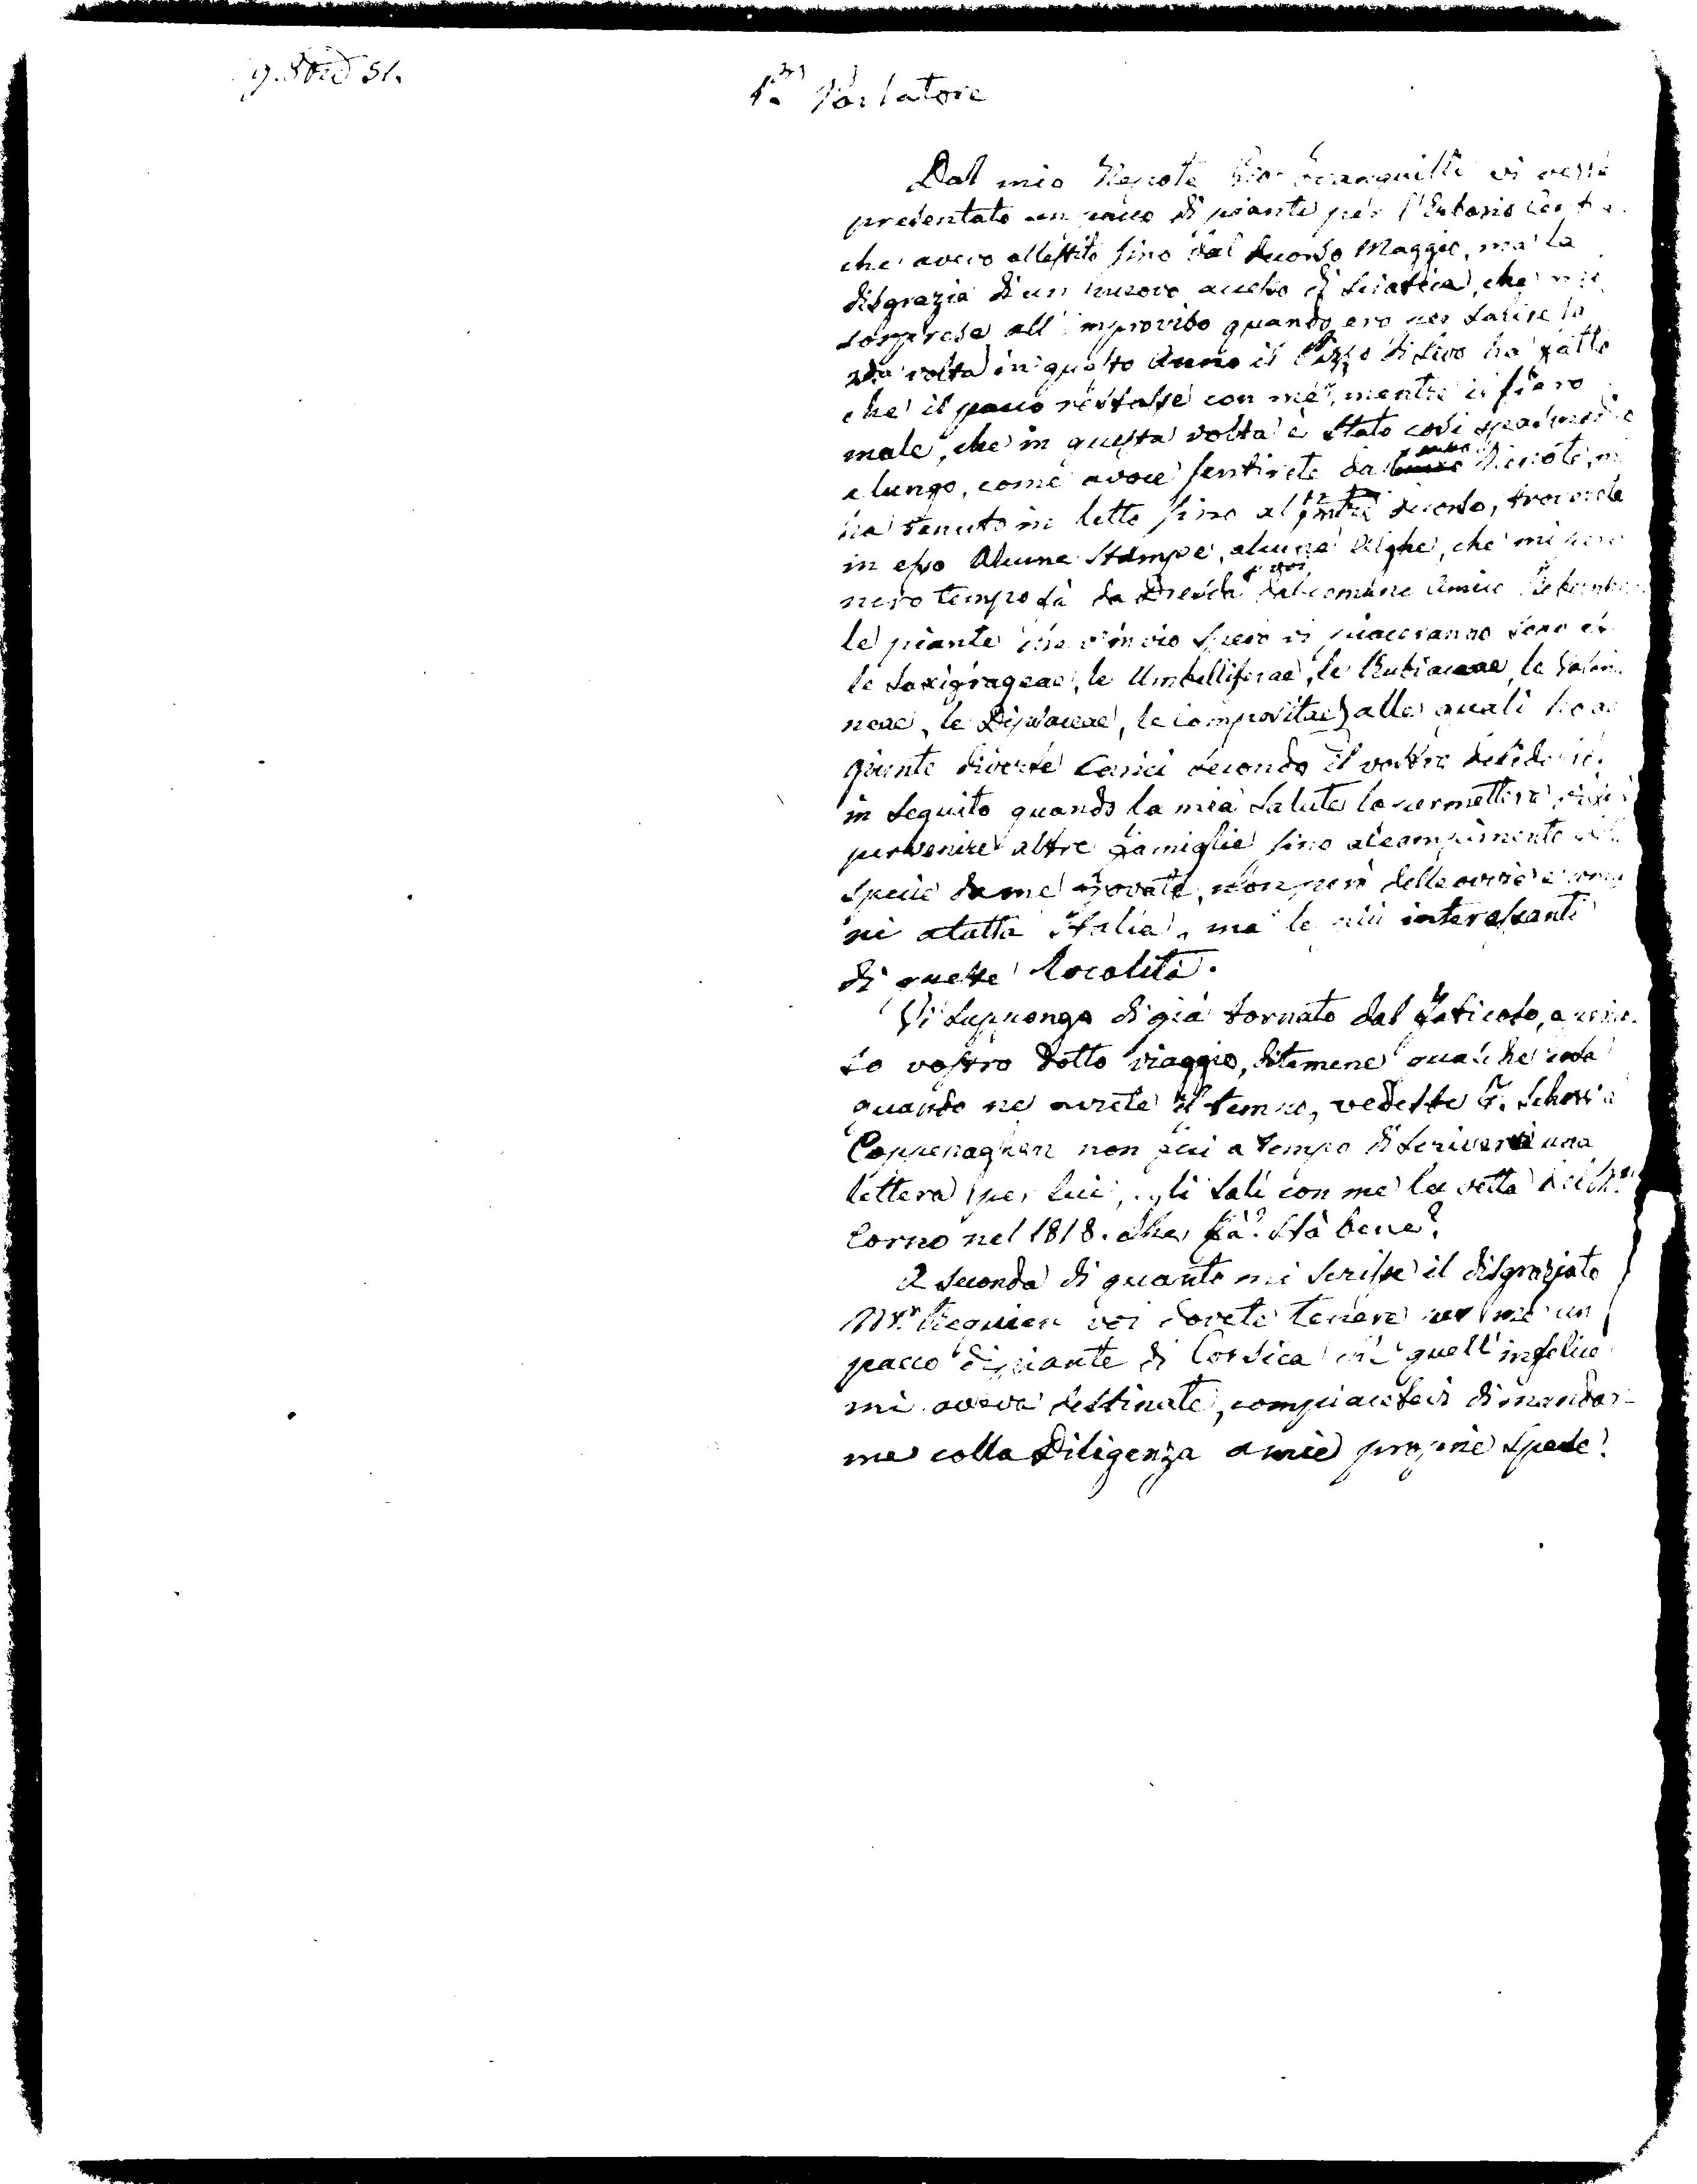 9. 8bre 51.
Parlatore
Dal mio Nepote Gio. Tranquilli vi verrà
presentato un pacco di piante per l'Erbario
che avevo allestito sino dal scorso Maggio, ma la
disgrazia di un nuovo accesso di Sciatica, che mi
sorprese all'improviso quando ero per salire la
2da volta in questo Anno il Pizzo di Sivo ha fatto
che il pacco restasse con me, mentre il fiero
male, che in questa volta è stato così spasmodico
e lungo, come a voce sentirete da Nepote, mi
ha tenuto in letto sino al scorso, troverete
in esso Alcune Stampe, alcune Alghe, che mi
nero tempo fà da Dresda p voi dal comune Amico
le piante che v'invio spero vi piaceranno sono
le Saxifrageae, le Umbelliferae, le Rubiaceae, le
neae, le Dipsaceae, le Compositae, alle quali ho ag
giunte diverse Carici secondo il vostro desiderio.
in seguito quando la mia salute lo permetterà
pervenire altre Famiglie sino al compimento
specie da me trovate, non però delle ovvie e comu
ni a tutta Italia, ma le più interessanti
di queste località.
Vi suppongo di già tornato dal faticoso,
so vostro dotto viaggio, ditemene qualche cosa
quando ne avrete il tempo, vedeste
Coppenaghen non fui a tempo di scrivervi una
lettera per lui, egli salì con me la vetta del M.
Corno nel 1818. che fà? Stà bene?
A seconda di quanto mi scrisse il disgraziato
Mr. Requien voi dovete tenere per me un
pacco di piante di Corsica che quell'infelice
mi aveva destinate, compiacetevi di mandar-
me colla Diligenza a mie proprie spese.